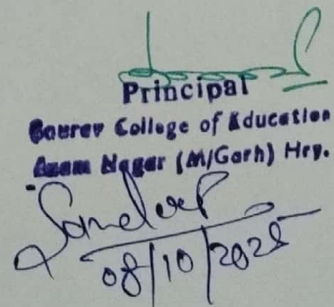 Principal
Gourev College of Education
Azam Nagar (M/Garh) Hry.
Sandeep
08/10/2025